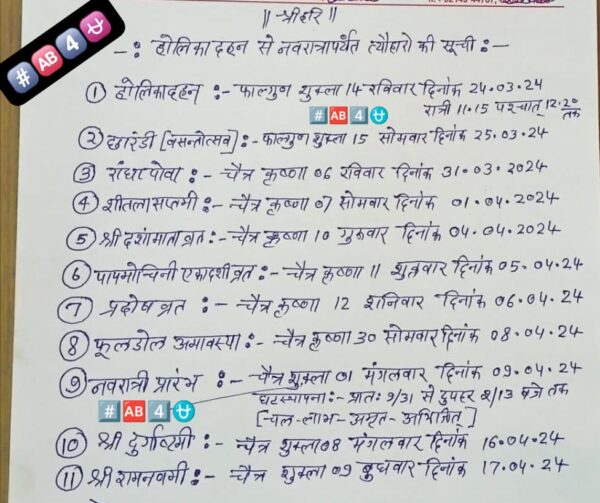 || श्रीहरि ||
-: होलिकादहन से नवरात्रापर्यंत त्यौहारो की सूची :-
# AB 4 ⛎
① होलिकादहन :- फाल्गुण शुक्ला 14 रविवार दिनांक 24.03.24
रात्री 11.15 पश्चात् 12.20 तक
# AB 4 ⛎
② छारंडी [वसन्तोत्सव] :- फाल्गुण शुक्ला 15 सोमवार दिनांक 25.03.24
③ रांधापोवा :- चैत्र कृष्णा 06 रविवार दिनांक 31.03.2024
④ शीतलासप्तमी :- चैत्र कृष्णा 07 सोमवार दिनांक 01.04.2024
⑤ श्री दशामाताव्रत :- चैत्र कृष्णा 10 गुरुवार दिनांक 04.04.2024
⑥ पापमोचिनी एकादशी व्रत :- चैत्र कृष्णा 11 शुक्रवार दिनांक 05.04.24
⑦ प्रदोष व्रत :- चैत्र कृष्णा 12 शनिवार दिनांक 06.04.24
⑧ फूलडोल अमावस्या :- चैत्र कृष्णा 30 सोमवार दिनांक 08.04.24
⑨ नवरात्री प्रारंभ :- चैत्र शुक्ला 01 मंगलवार दिनांक 09.04.24
घटस्थापना :- प्रातः 9/31 से दुपहर 2/13 बजे तक
# AB 4 ⛎
[-चल-लाभ-अमृत-अभिजित]
⑩ श्री दुर्गाष्टमी :- चैत्र शुक्ला 08 मंगलवार दिनांक 16.04.24
⑪ श्री रामनवमी :- चैत्र शुक्ला 09 बुधवार दिनांक 17.04.24